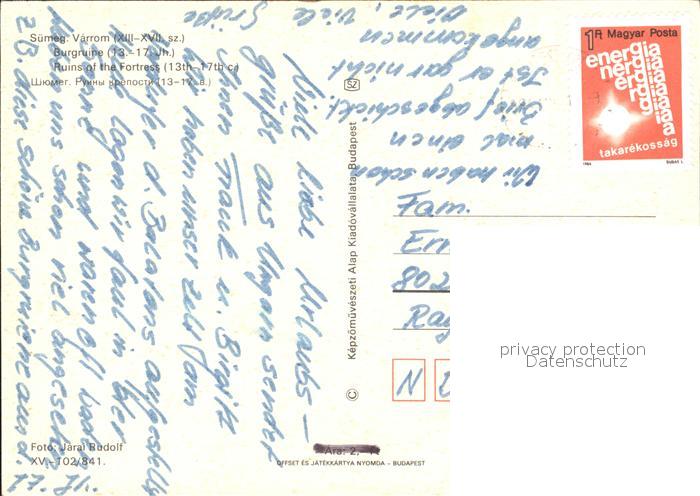 Sümeg: Várrom (XIII–XVII. sz.)
Burgruine (13.–17. Jh.)
Ruins of the Fortress (13th–17th c.)
Шюмег. Руины крепости (13–17 в.)
Viele liebe Urlaubs-
grüße aus Ungarn sendet
Ihnen Frank u. Birgit
Wir haben unser Zelt am
d. Balatons aufgestellt
liegen wir faul in der
Sonne und waren oft baden
uns schon viel angesehen
z.B. diese schöne Burgruine aus d.
Wir haben schon
mal einen
Brief abgeschickt.
Ist er gar nicht
angekommen
Viele, viele
Grüße
Képzőművészeti Alap Kiadóvállalata, Budapest
SZ
©
1 Ft Magyar Posta
energia
takarékosság
Fam.
Er
802
Ra
N
privacy protection
Datenschutz
Fotó: Járai Rudolf
XV.–102/841.
Ára: 2,– Ft
OFFSET ÉS JÁTÉKKÁRTYA NYOMDA – BUDAPEST